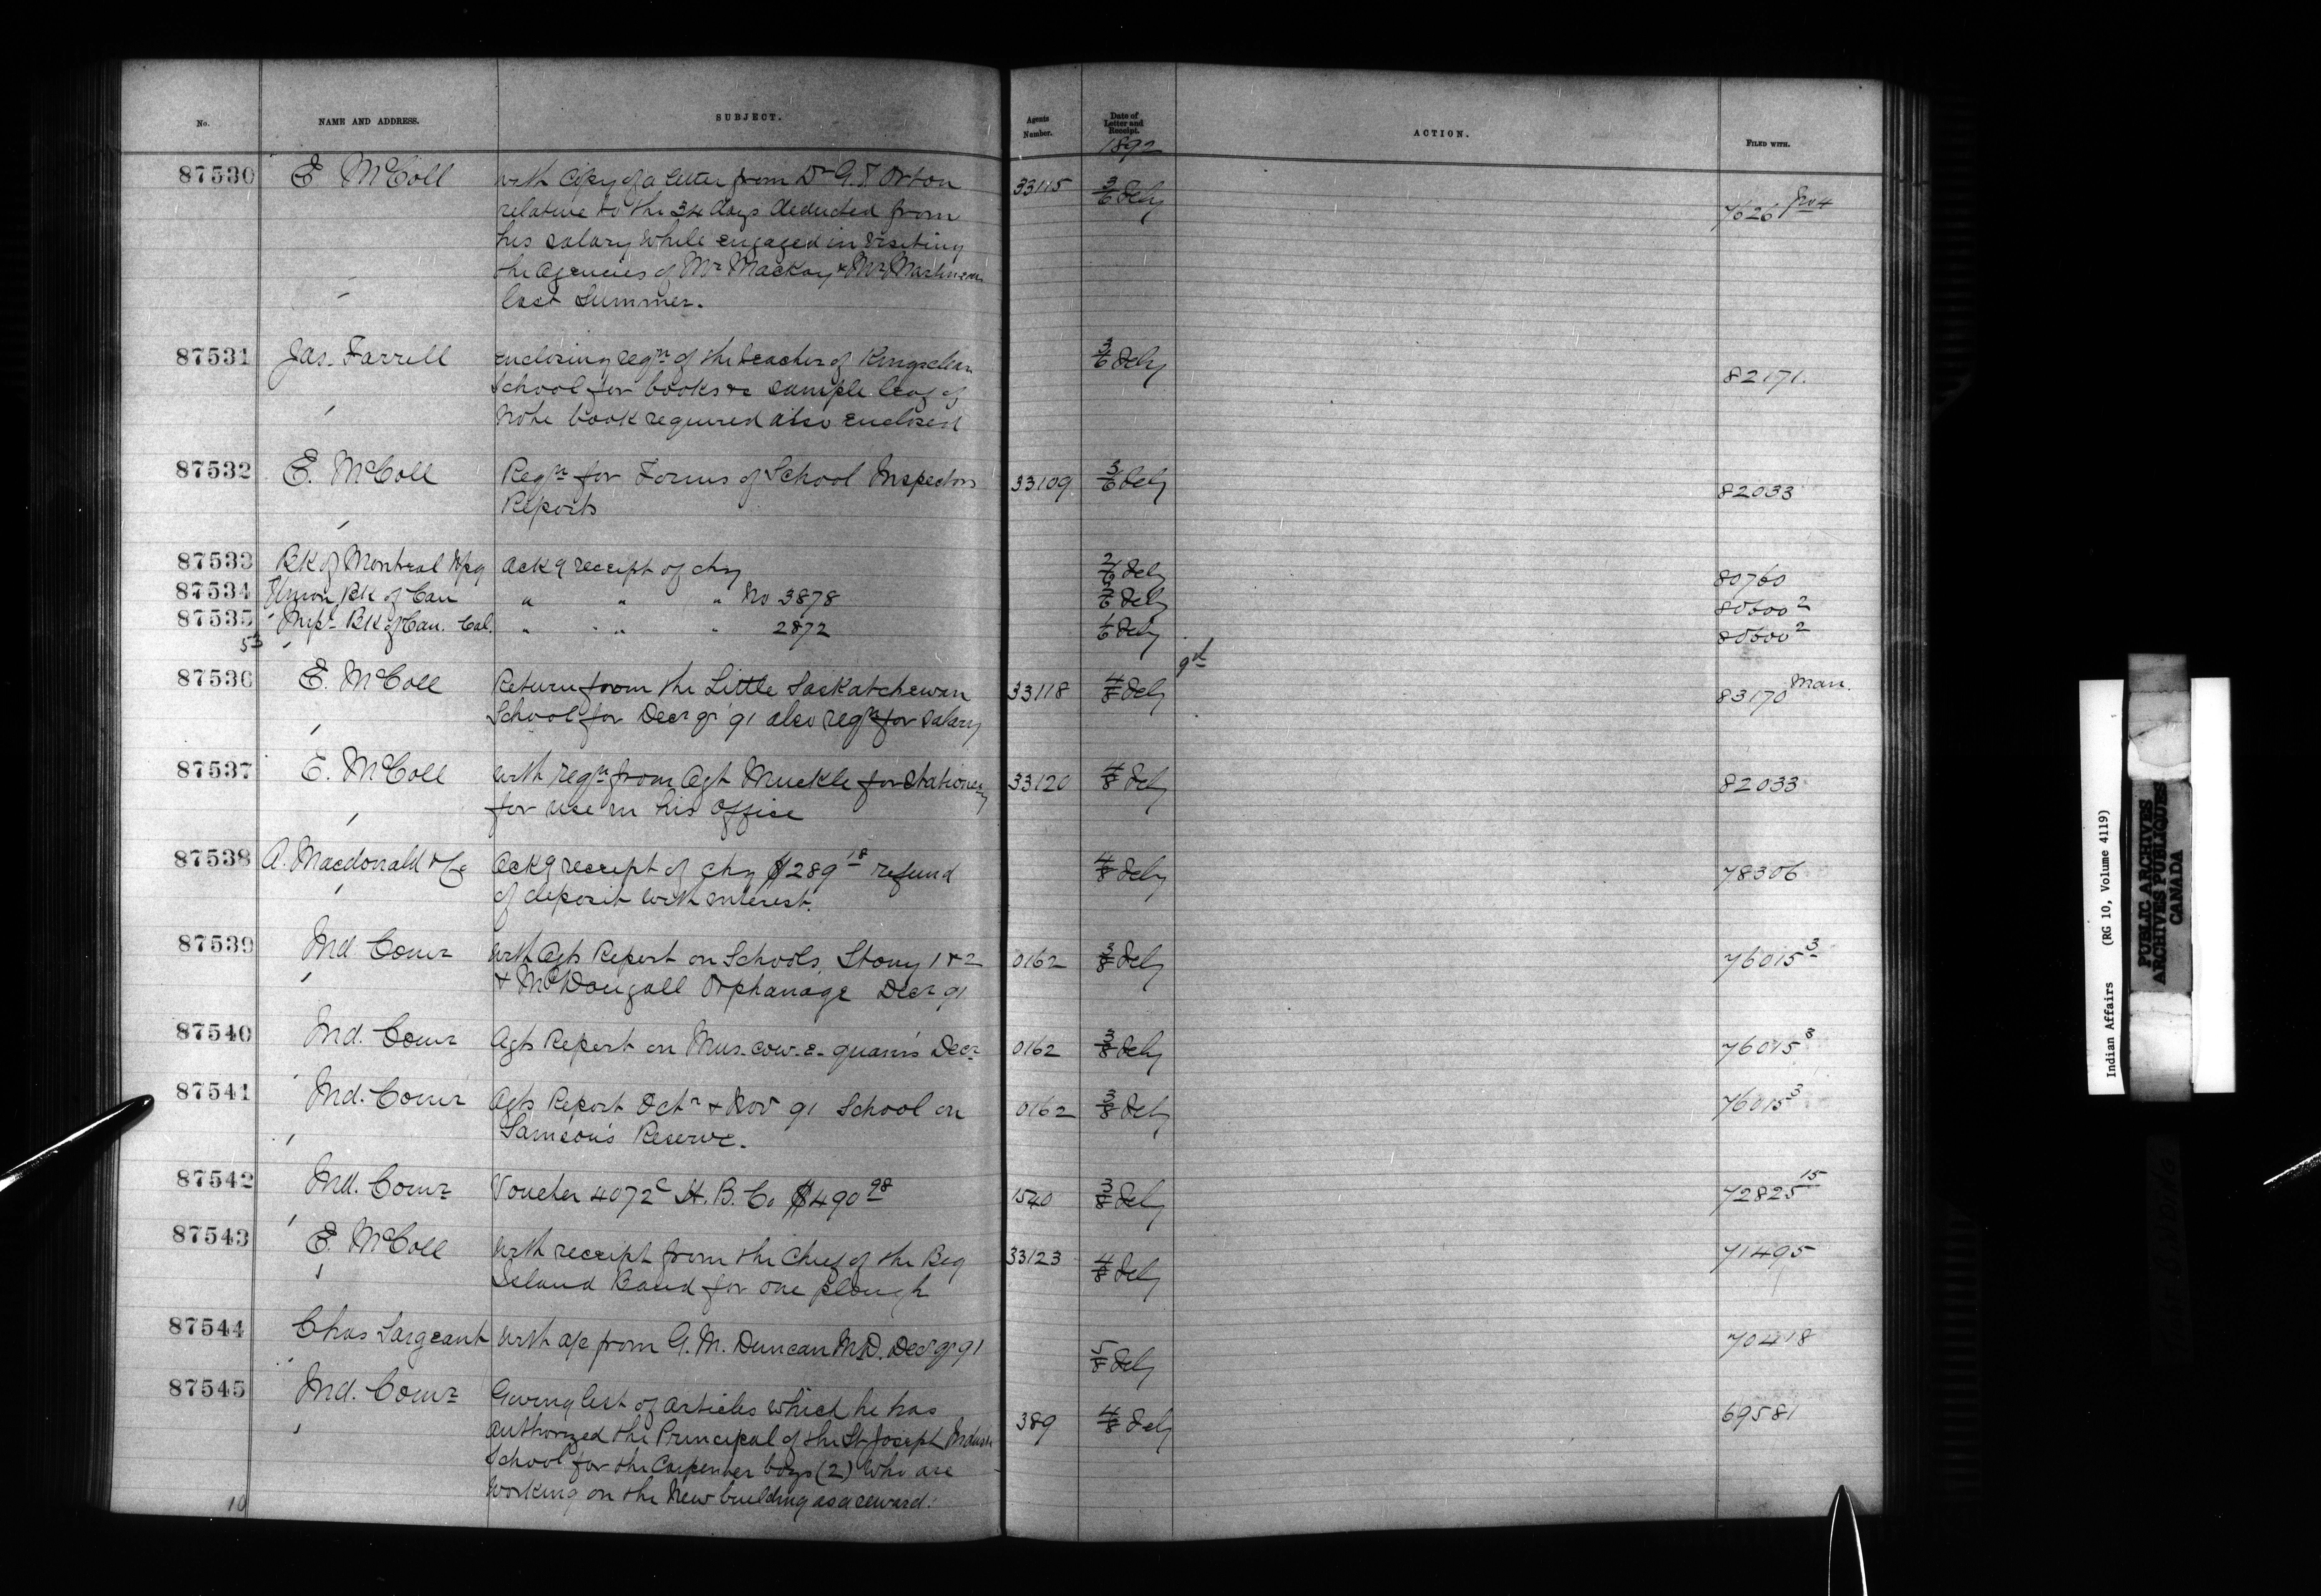 No. NAME AND ADDRESS. SUBJECT. Agents Number. Date of Letter and Receipt. ACTION. FILED WITH.
1892
87530 E McColl with Copy of a letter from Dr G.T Orton 33115 3/6 Feby 7626 No 4
relative to the 34 days deducted from
his salary while engaged in visiting
the Agencies of Mr Mackay & Mr Martineau
last summer.
87531 Jas. Farrell enclosing reqn of the teacher of Kingsclear 3/6 Feby 82171.
School for books &c sample leaf of
note book required also enclosed
87532 E. McColl Reqn for Forms of School Inspectors 33109 3/6 Feby 82033
Reports
87533 Bk of Montreal Wpg Ackg receipt of chq 2/6 Feby 80760
87534 Union Bk of Can " " " No 3878 2/6 Feby 80600 2
87535 Impl Bk of Can. Cal. " " " 2872 1/6 Feby 80600 2
53
9th
87536 E. McColl Return from the Little Saskatchewan 33118 4/8 Feby 83170 Man.
School for Decr qr '91 also reqn for salary
87537 E. McColl with reqn from Agt Muckle for stationery 33120 4/8 Feby 82033
for use in his office
87538 A. Macdonald & Co Ackg receipt of chq $289 18 refund 4/8 Feby 78306
of deposit with interest.
87539 Ind Comr with Agts Report on Schools, Stony 1 & 2 0162 3/8 Feby 76015 3
& McDougall Orphanage Decr 91
87540 Ind. Comr Agts Report on Mus-cow-e-quan's Decr 0162 3/8 Feby 76015 3
87541 Ind. Comr Agts Report Octr & Nov 91 School on 0162 3/8 Feby 76015 3
Samson's Reserve.
87542 Ind. Comr Voucher 4072c H. B. Co $490 98 1540 3/8 Feby 72825 15
87543 E. McColl with receipt from the Chief of the Big 33123 4/8 Feby 71495
Island Band for one plough
87544 Chas Sargeant with a/c from G. M. Duncan M.D. Decr qr 91 5/8 Feby 70418
87545 Ind. Comr Giving list of articles which he has 389 4/8 Feby 69581
authorized the Principal of the St Joseph Indusl
School for the Carpenter boys (2) who are
working on the New building as a reward.
10
Indian Affairs (RG 10, Volume 4119)
PUBLIC ARCHIVES
ARCHIVES PUBLIQUES
CANADA